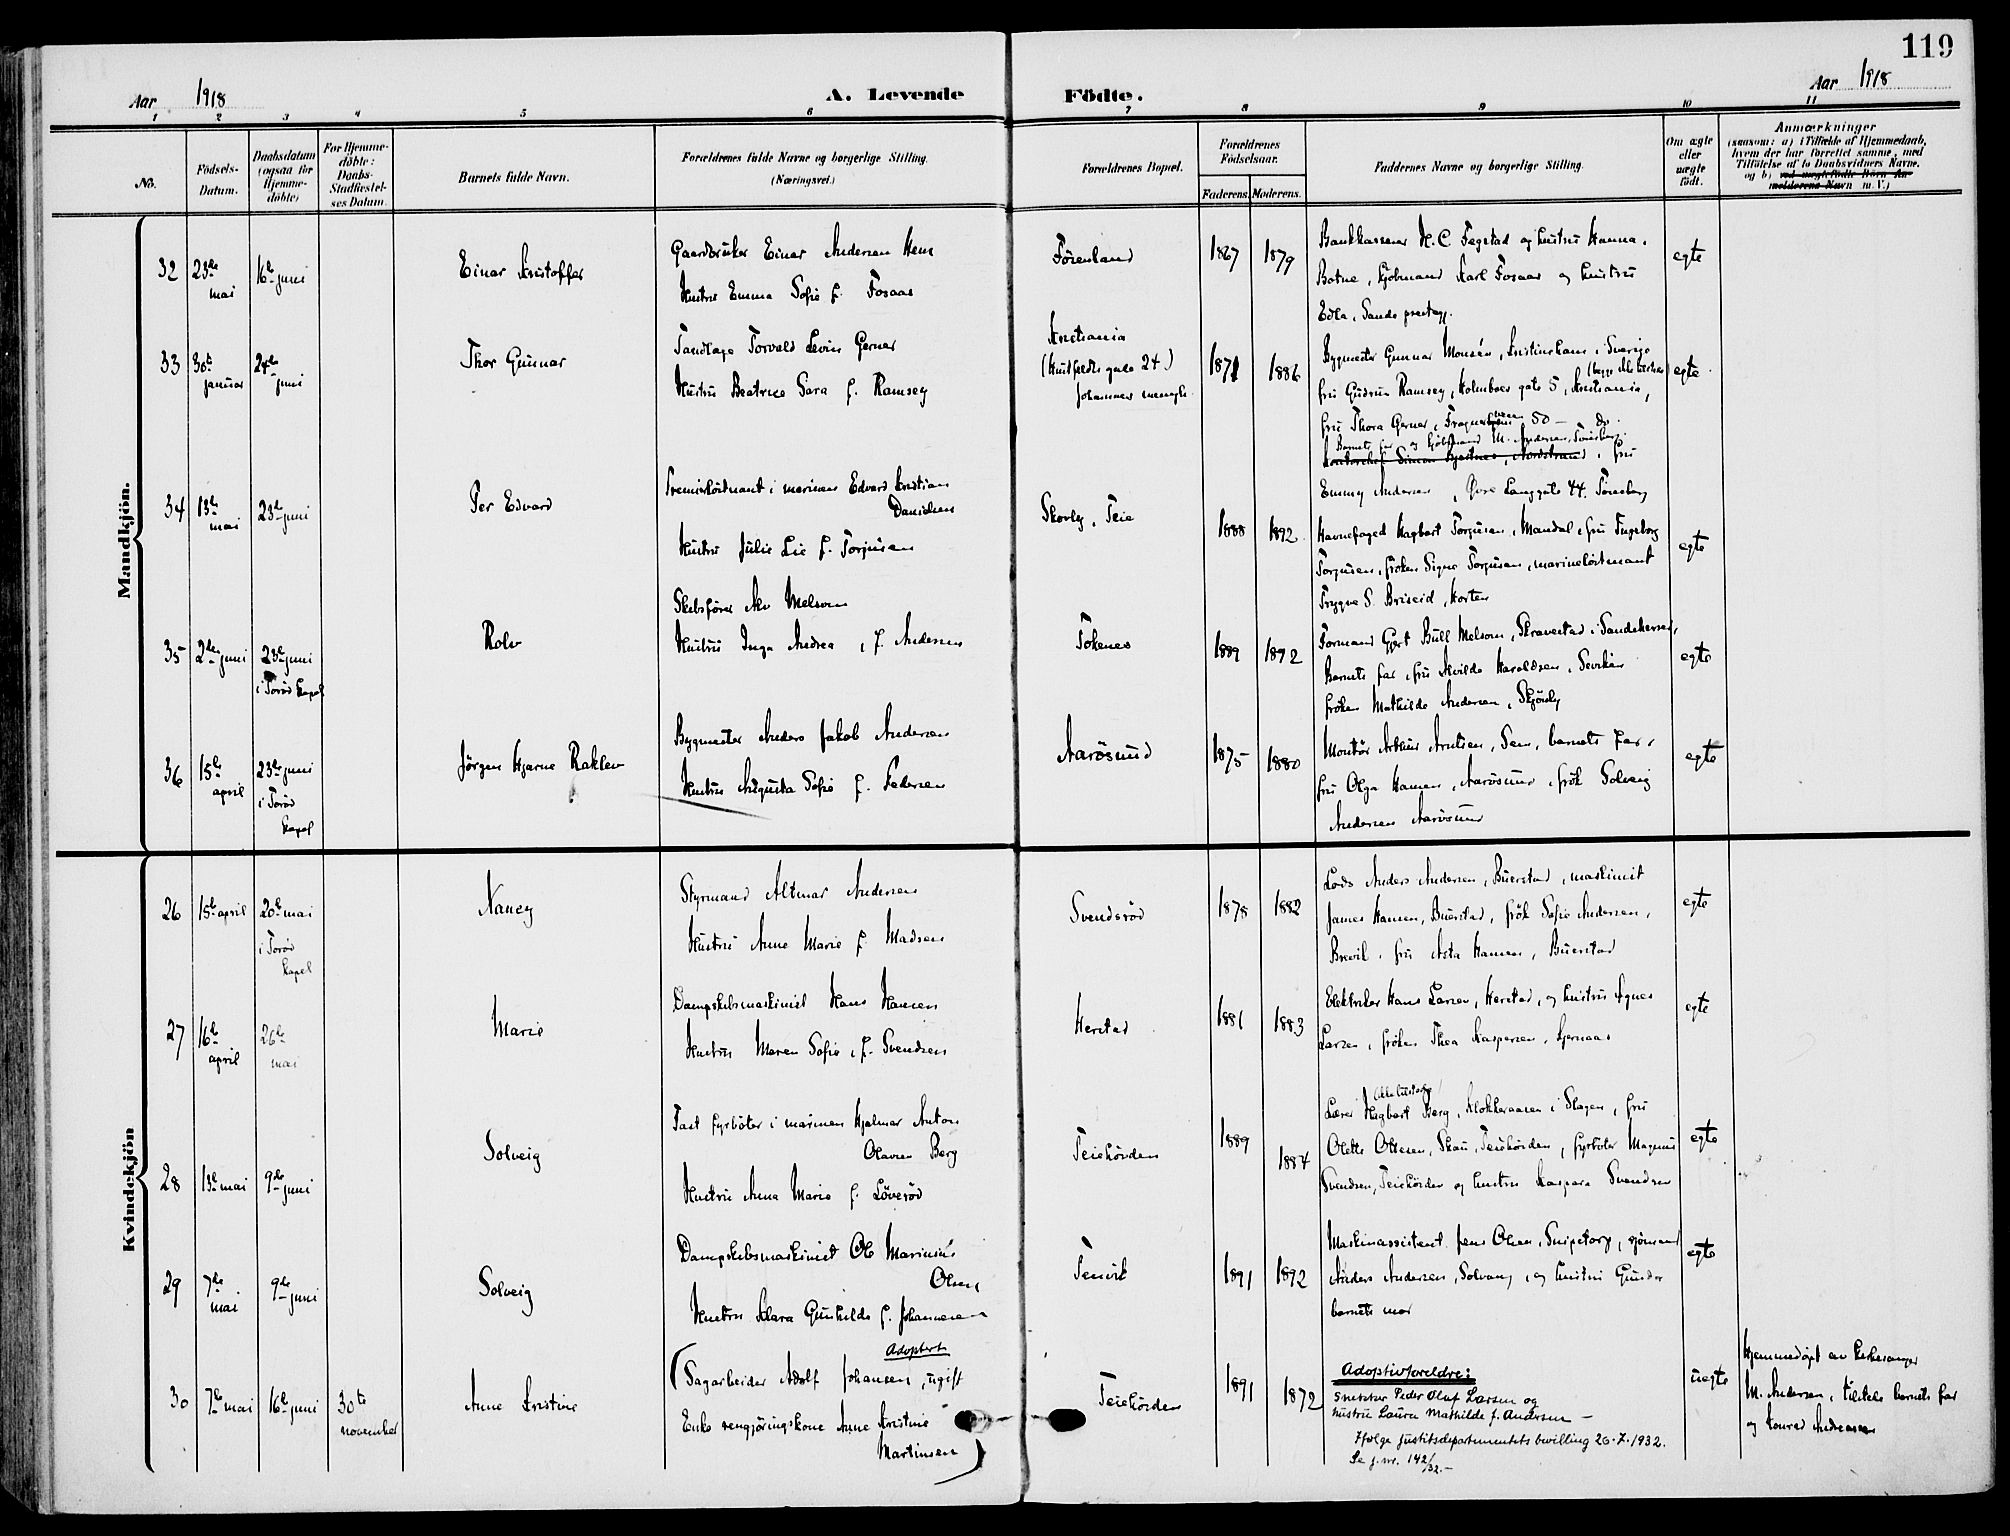 119
Aar 1918
A. Levende Födte.
Aar 1918
1 2 3 4 5 6 7 8 9 10 11
No.
Födsels-
Datum.
Daabsdatum
(ogsaa for
Hjemme-
döbte)
For Hjemme-
döbte:
Daabs-
Stadfæstel-
ses Datum.
Barnets fulde Navn.
Forældrenes fulde Navne og borgerlige Stilling.
(Næringsvei.)
Forældrenes Bopæl.
Forældrenes
Födselsaar.
Faderens. Moderens.
Faddernes Navne og borgerlige Stilling.
Om ægte
eller
uægte
födt.
Anmærkninger
(saasom: a) i Tilfælde af Hjemmedaab,
hvem der har forrettet samme, med
Tilföielse af to Daabsvidners Navne.
og b) ved uægtefödte Börn An-
melderens Navn m. V.)
Mandkjön.
32
23de
mai
16de juni
Einar Kristoffer
Gaardbruker Einar Andersen Hem
Hustru Emma Sofie f. Fosaas
1867
1879
Bankkasserer H. C. Fegstad og hustru Hanna,
Botne, kjøbmand Karl Fosaas og hustru
Edla, Sande prestegj.
egte
33
30te
januar
24de
juni
Thor Gunnar
Tandlæge Torvald Levin Gerner
Hustru Beatrice Sara f. Ramsey
Kristiania
(Huitfeldts gade 24)
Johannes menigh.
1871
1886
Bygmester Gunnar Monsén, Kristinehamn, Sverige
fru Gudrun Ramsey, Holmboes gate 5, Kristiania,
fru Thora Gerner, 50 — do.
egte
34
13de
mai
23de juni
Per Edvard
Premierløitnant i marinen Edvard Kristian
Danielsen
Hustru Julie Lie f. Torjusen
Skovly, Teie
1888
1892
Barnets far og kjøbmand M. Andersen, Tønsberg.
fru
Emmy Andersen, Øvre Langgate 44, Tønsberg
Havnefoged Hagbart Torjusen, Mandal, fru Ingeborg
Torjusen, frøken Signe Torjusen, marineløitnant
Trygve S. Briseid, Horten
egte
35
2den juni
23de juni
i Torød kapel
Rolv
Skibsfører Alv Melsom
Hustru Inga Andrea, f. Andersen
Tokenes
1889
1892
Formand Gjert Bull Melsom, Skravestad i Sandeherred,
Barnets far, fru Alvilde Haraldsen,
frøken Mathilde Andersen,
egte
36
15de
april
23de juni
i Torød
kapel
Jørgen Hjarne Raklev
Bygmester Anders Jakob Andersen
Hustru Augusta Sofie f. Pedersen
Aarøsund
1875
1880
Montør Arthur Arntsen, Sem, barnets far,
fru Olga Hansen, Aarøsund, frøk Solveig
Andersen Aarøsund
egte
Kvindekjön
26
15de april
20de mai
i Torød
kapel
Nancy
Styrmand Altmar Andersen
Hustru Anne Marie f. Madsen
Svendsrød
1878
1882
Lods Anders Andersen, Buerstad, maskinist
James Hansen, Buerstad, frøk Sofie Andersen,
Brevik, fru Asta Hansen, Buerstad
egte
27
16de
april
26de
mai
Marie
Dampskibsmaskinist Hans Hansen
Hustru Maren Sofie, f. Svendsen
Herstad
1881
1883
Elektriker Hans Larsen, Herstad, og hustru Agnes
Larsen, frøken Thea Kaspersen, Gjernaas
egte
28
13de mai
9de juni
Solveig
Fast fyrbøter i marinen Hjalmar Anton
Olavsen Berg
Hustru Anna Marie f. Løverød
Teiehöiden
1889
1884
Lærer Hagbart Berg, Klokkeraasen i Slagen, fru
Olette Oltesen, Skau, Teiehöiden, fyrbøter Magnus
Svendsen, Teiehöiden og hustru Kaspara Svendsen
egte
29
7de
mai
9de juni
Solveig
Dampskibsmaskinist Ole Marinius
Olsen
Hustru Klara Gunhilde f. Johannesen
Tenvik
1891
1892
Maskinassistent Jens Olsen, Snipetorp, sjömand
Anders Andersen, Solvang, og hustru Gunda
barnets mor
egte
30
7de mai
16de juni
30te
november
Anne Kristine
Adoptert
(Sagarbeider Adolf Johansen, ugift
Enke rengjøringskone Anne Kristine
Martinsen)
Teiehöiden
1891
1872
Adoptivforeldre:
Snekker Peder Oluf Larsen og
hustru Laura Mathilde f. Andersen —
Ifølge Justitsdepartementets bevilling 26.7.1932.
Se j.nr. 142/32.—
uegte
Hjemmedøpt av kirkesanger
M. Andersen, tilstede barnets far
og Konrad Andreassen